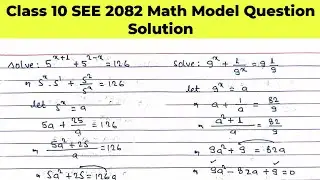 Class 10 SEE 2082 Math Model Question
Solution
Solve: 5^{x+1} + 5^{2-x} = 126
⇒ 5^x·5^1 + 5^2/5^x = 126
let 5^x = a
5a + 25/a = 126
⇒ (5a^2 + 25)/a = 126
⇒ 5a^2 + 25 = 126a
Solve: 9^x + 1/9^x = 9 1/9
let 9^x = a
⇒ a + 1/a = 82/9
⇒ (a^2 + 1)/a = 82/9
⇒ 9a^2 + 9 = 82a
⇒ 9a^2 - 82a + 9 = 0